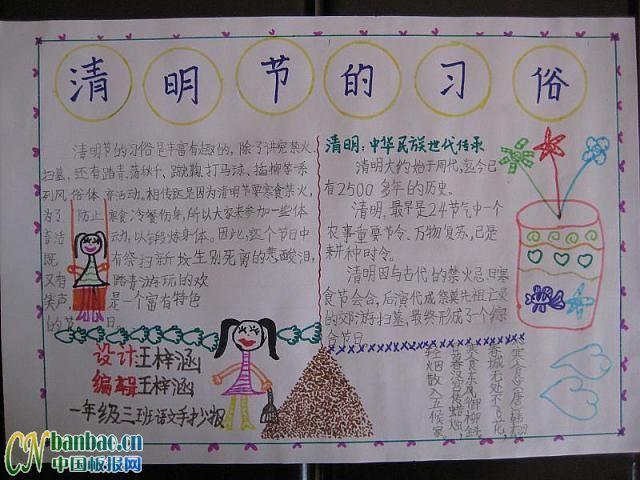 清明节的习俗
清明节的习俗是丰富有趣的，除了讲究禁火
扫墓，还有踏青、荡秋千、蹴鞠、打马球、插柳等一系
列风俗体育活动。相传这是因为清明节要寒食禁火，
为了防止寒食冷餐伤身，所以大家来参加一些体
育活动，以锻炼身体。因此，这个节日中
既有祭扫新坟生别死离的悲酸泪，
又有踏青游玩的欢
笑声，是一个富有特色
的节日。
设计：王梓涵
编辑：王梓涵
一年级三班语文手抄报
清明：中华民族世代传承
清明大约始于周代，迄今已
有2500多年的历史。
清明，最早是24节气中一个
农事重要节令、万物复苏，已是
耕种时令。
清明因与古代的禁火忌日寒
食节会合，后演代成祭奠先祖上受
的交际游扫墓，最终形成了个综
合节日
春城无处不飞花，
寒食东风御柳斜。
日暮汉宫传蜡烛，
轻烟散入五侯家
CNbanbao.cn
中国板报网